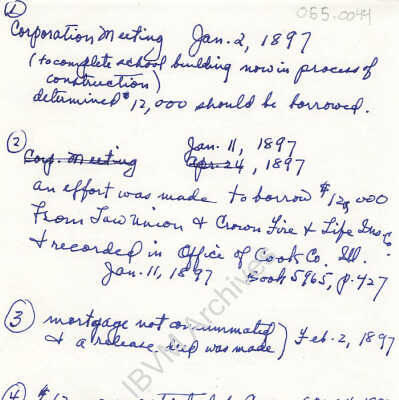 055.0044
1
Corporation Meeting Jan. 2, 1897
(to complete school building now in process of
construction)
determined $12,000 should be borrowed.
2 Jan. 11, 1897
Corp. Meeting Apr. 24, 1897
an effort was made to borrow $12,000
From Law Union & Crown Fire & Life Ins. Co.
& recorded in Office of Cook Co. Ill.
Jan. 11, 1897 Book 5965, p. 427
3 mortgage not consummated
& a release deed was made) Feb. 2, 1897
4 $12
IBVM Archives